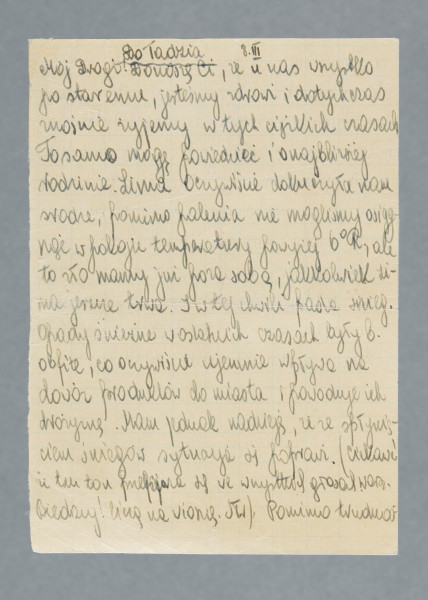 Do Tadzia 8.III
Mój Drogi! Donoszę Ci, że u nas wszystko
po staremu, jesteśmy zdrowi i dotychczas
znośnie żyjemy w tych ciężkich czasach
To samo mogę powiedzieć i o najbliższej
rodzinie. Zima oczywiście dokuczyła nam
srodze, pomimo palenia nie mogliśmy osią-
gnąć w pokoju temperatury powyżej 6°R, ale
to zło mamy już poza sobą, jakkolwiek zi-
ma jeszcze trwa. I w tej chwili pada śnieg.
Opady śnieżne w ostatnich czasach były b.
obfite, co oczywiście ujemnie wpływa na
dowóz produktów do miasta i powoduje ich
drożyznę. Mam jednak nadzieję, że ze spłynię-
ciem śniegów sytuacja się poprawi. (Ciekawe
że ten ton się we wszystkich
liczą na wiosnę. ). Pomimo trudnoś-